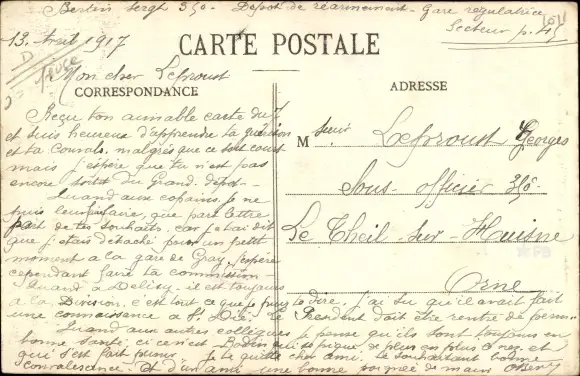 Bertein sergt 350 - Depot de réarmement - Gare regulatrice
Secteur p. 45
13 Avril 1917
CARTE POSTALE
Mon cher Leproust
CORRESPONDANCE
Reçu ton aimable carte du 7
et suis heureux d'apprendre ta guérison
et ta convals. malgrès que ce soit court
mais j'espère que tu n'est pas
encore sortit du Grand dépot -
Quand aux copains, je ne
puis leur faire, que par lettre
part de tes souhaits, car je t'ai dit
que j'étais détaché pour un petit
moment a la gare de Gray, j'espère
cependant faire ta commission -
Quand a Delisy - il est toujours
a la Division, c'est tout ce que je puis te dire. J'ai su qu'il avait fait
une connaissance a St Dié. Le doit être rentré de perm -
Quand aux autres collègues, je pense qu'ils sont toujours en
bonne santé, ici ce n'est que de plus en plus et
qui s'est fait Je te quitte cher ami. Te souhaitant bonne
convalescance. Et d'un ami une bonne poignée de main
ADRESSE
M sieur Leproust Georges
Sous-officier 350
Le Theil-sur-Huisne
Orne